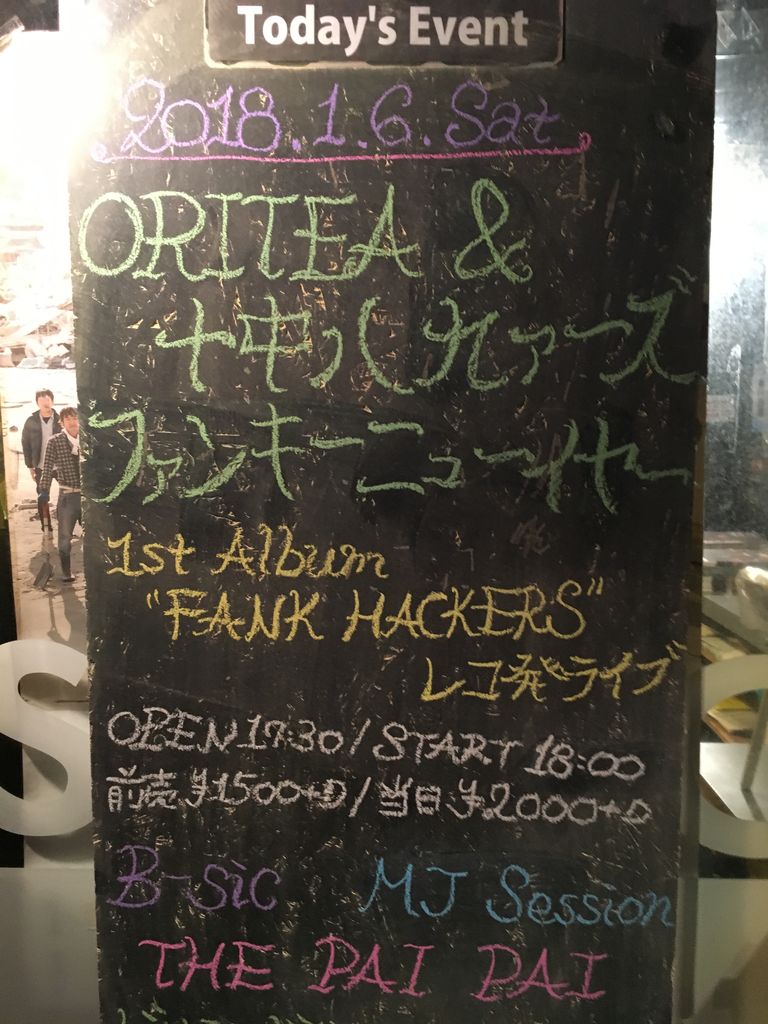 Today's Event
2018.1.6.Sat
ORITEA &
十中八九ァーズ
ファンキーニューイヤー
1st Album
"FANK HACKERS"
レコ発ライブ
OPEN 17:30 / START 18:00
前売 ¥1500+D / 当日 ¥2000+D
B-sic MJ Session
THE PAI PAI